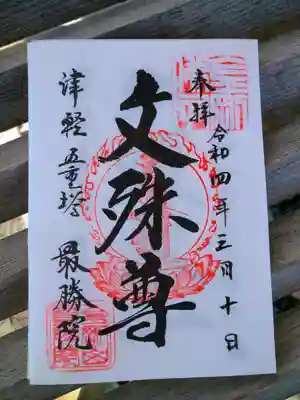 奉拝
令和四年三月十日
文殊尊
津軽五重塔
最勝院